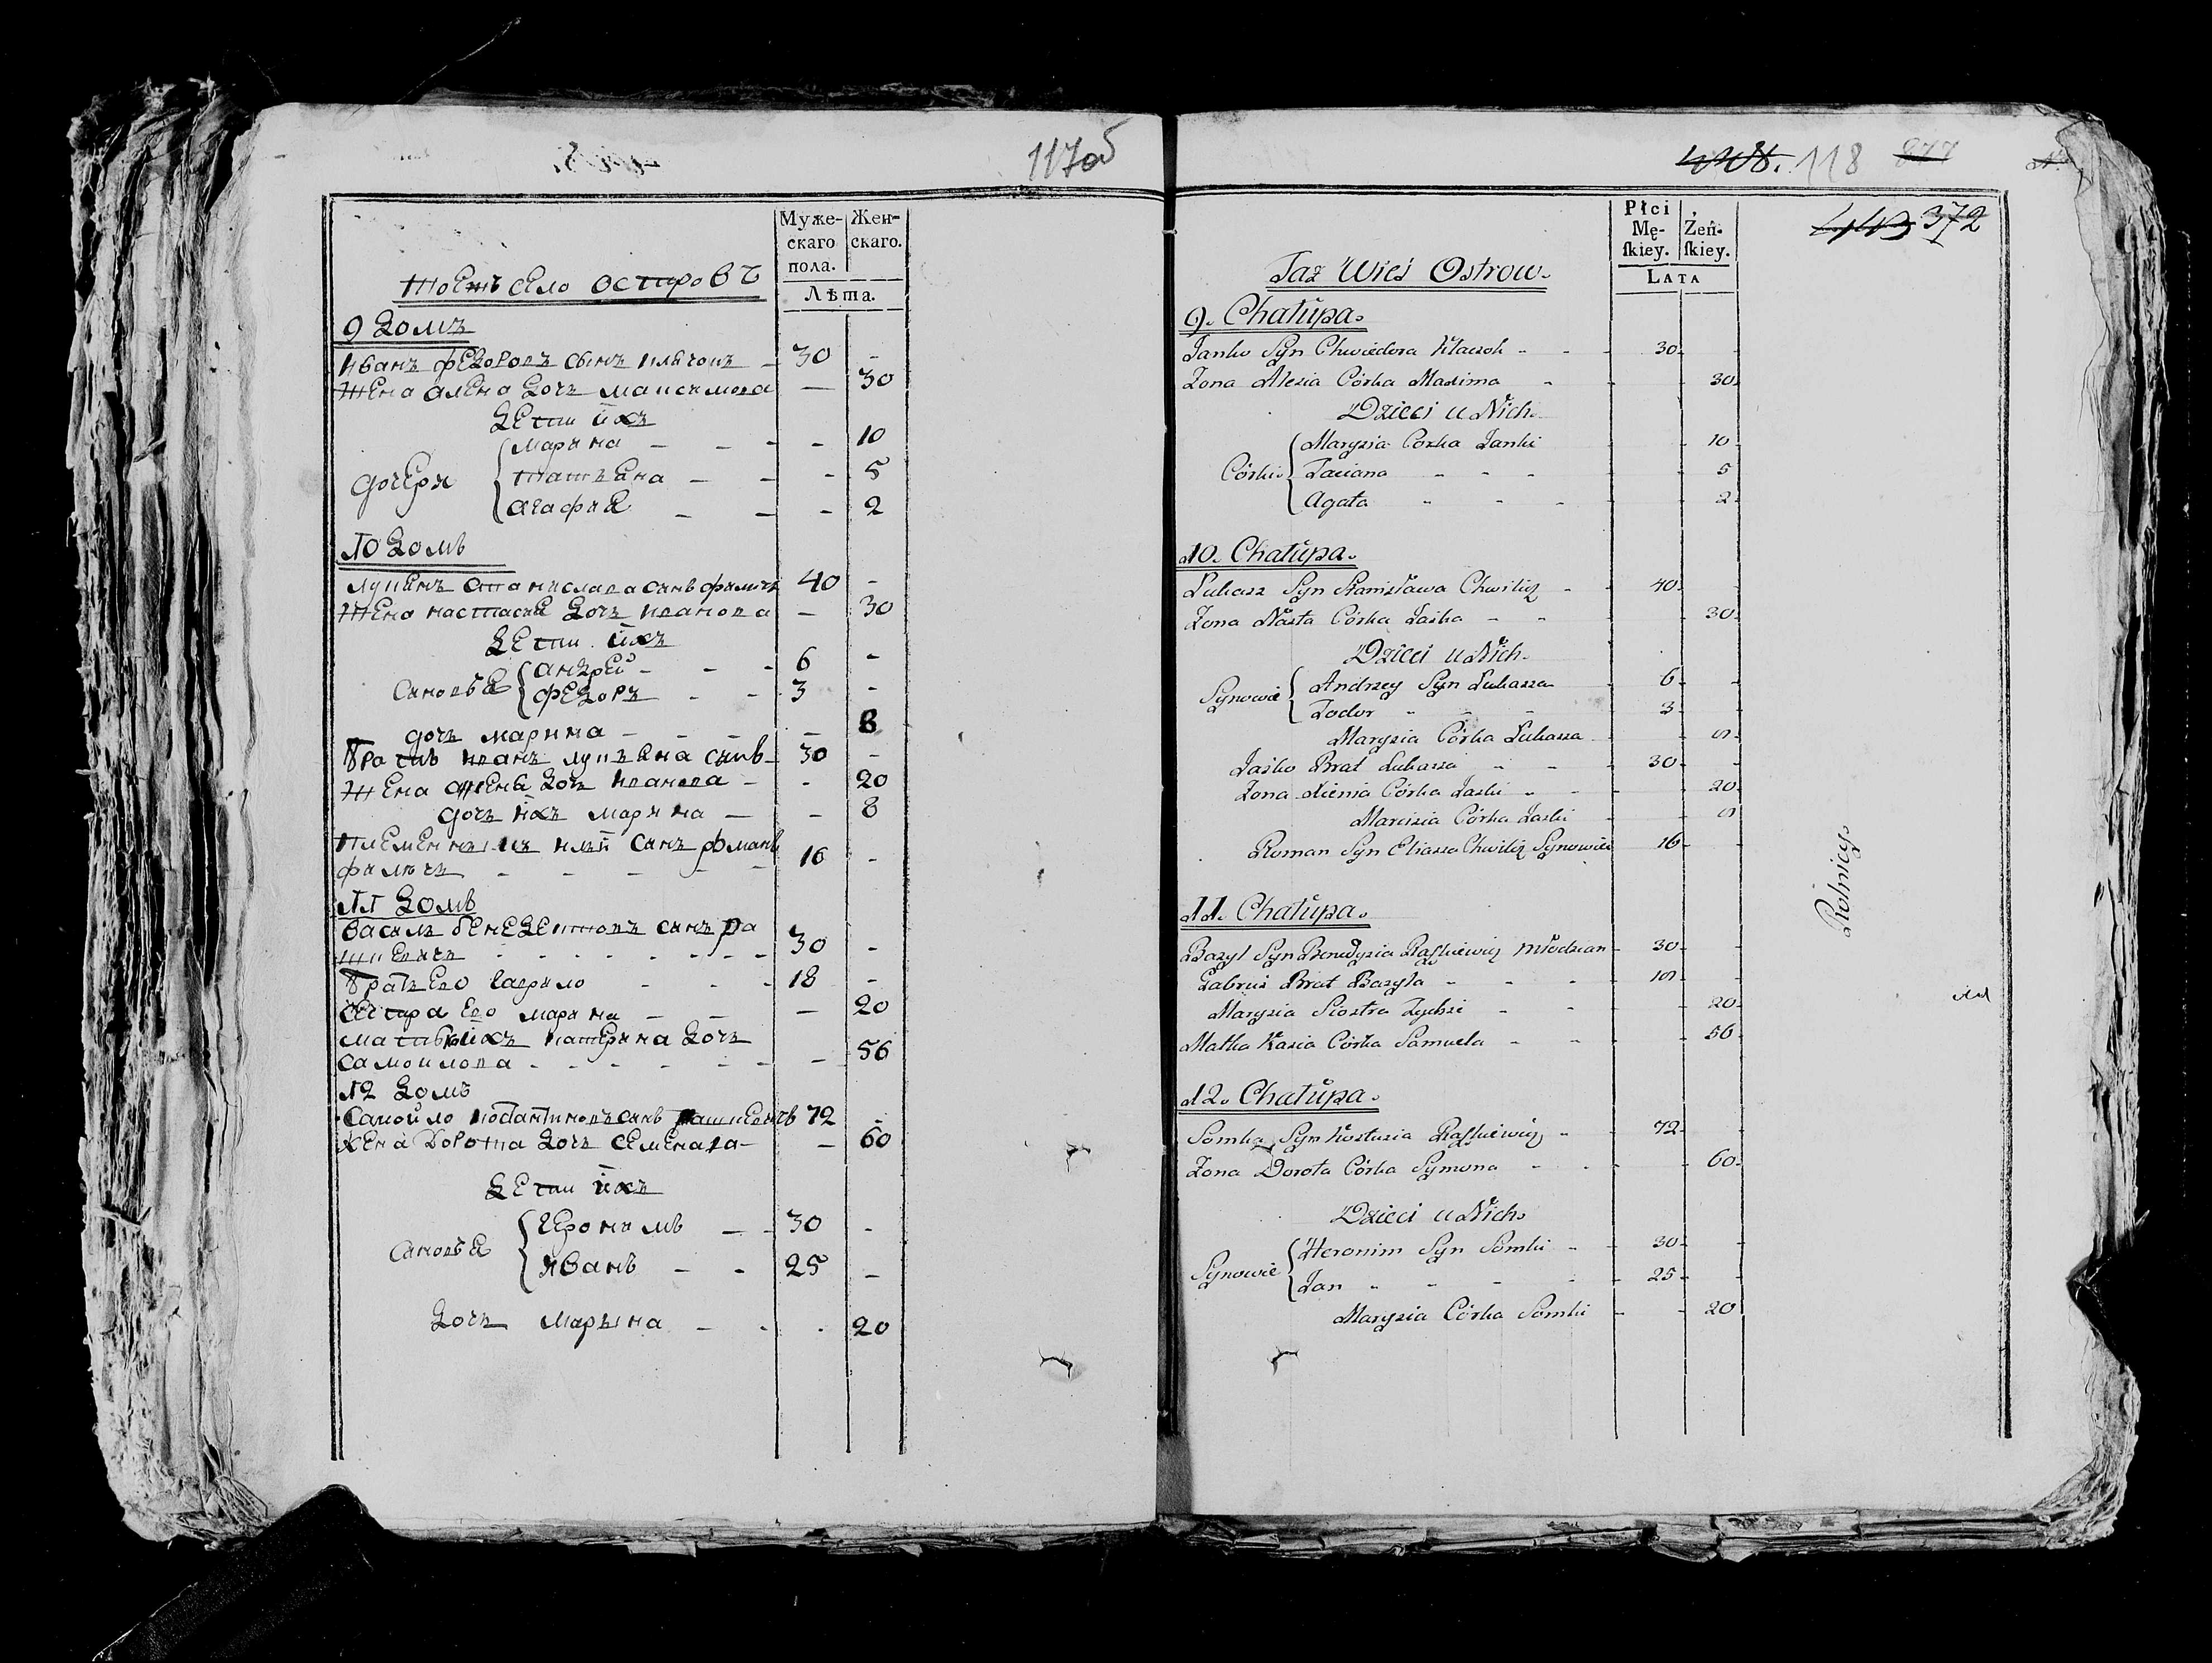 117об
Муже-
скаго
пола.
Жен-
скаго.
Лѣта.
тоежъ село островъ
9 домъ
иванъ федоровъ сынъ клычокъ - 30 -
жена алена дочъ максимова — 30
дети ихъ
дочери
марина — - - - 10
татьяна — - - 5
агафия — — - 2
10 домъ
лукьянъ станиславовъ сынъ филичъ 40 -
жена настасия дочъ иванова — 30
дети ихъ
сыновья
андрей - - - 6 -
федоръ - - 3 -
дочъ марина - - - — 8
братъ иванъ лукьяна сынъ - 30 -
жена дочъ иванова - - 20
дочъ ихъ марина — - 8
племенникъ сынъ романъ
филичъ - - - - - 16 -
11 домъ
василь бенедектовъ сынъ ра
- - - - - - 30 -
братъ ево гаврило - - - 18 -
сестра ево марина — — — 20
мать ихъ катерина дочъ
самоилова - - - - - - — 56
12 домъ
самойло костантиновъ сынъ рашкевичъ 72 -
жена доротка дочъ семенова — — 60
дети ихъ
сыновья
героним — - 30 -
иванъ — - 25 -
дочъ марына — - - 20
118
372
Płci
Mę-
ſkiey.
Żeń-
ſkiey.
LATA
Taż Wieś Ostrow.
9. Chałupa.
Janko Syn Chwiedora Kłaczok - - - 30. -
Zona Alesia Córka Maxima - - - 30.
Dzieci u Nich.
Córki
Marysia Corka Janki - - 10.
Taciana - - - - - 5
Agata - - - - - 2.
10. Chałupa.
Lukasz Syn Stanisława Chwilicz - - 40. -
Zona Nasta Córka Jaśka - - - - 30.
Dzieci u Nich.
Synowie
Andrzey Syn Lukasza - 6. -
Todor - - - - 3. -
Marysia Córka Lukasza - - 8.
Jaśko Brat Lukasza - - - 30. -
Zona Xienia Córka Jaśki - - - - 20.
Marcisia Córka Jaśki - - 8
Roman Syn Eliasza Chwilicz Synowiec 16. -
11. Chałupa.
Bazyl Syn Benedyzia Raſzkiewicz Młodzian - 30. -
Gabruś Brat Bazyla - - - - 18. -
Marysia Siostra Tychże - - - - 20.
Matka Kasia Córka Samuela - - - - 56.
12. Chałupa.
Somka Syn Kostusia Raſzkiewicz - - 72. -
Zona Dorota Córka Symona - - - - 60.
Dzieci u Nich.
Synowie
Heronim Syn Somki - - 30. -
Jan - - - - - 25. -
Marysia Córka Somki - - 20.
Rolnicy.